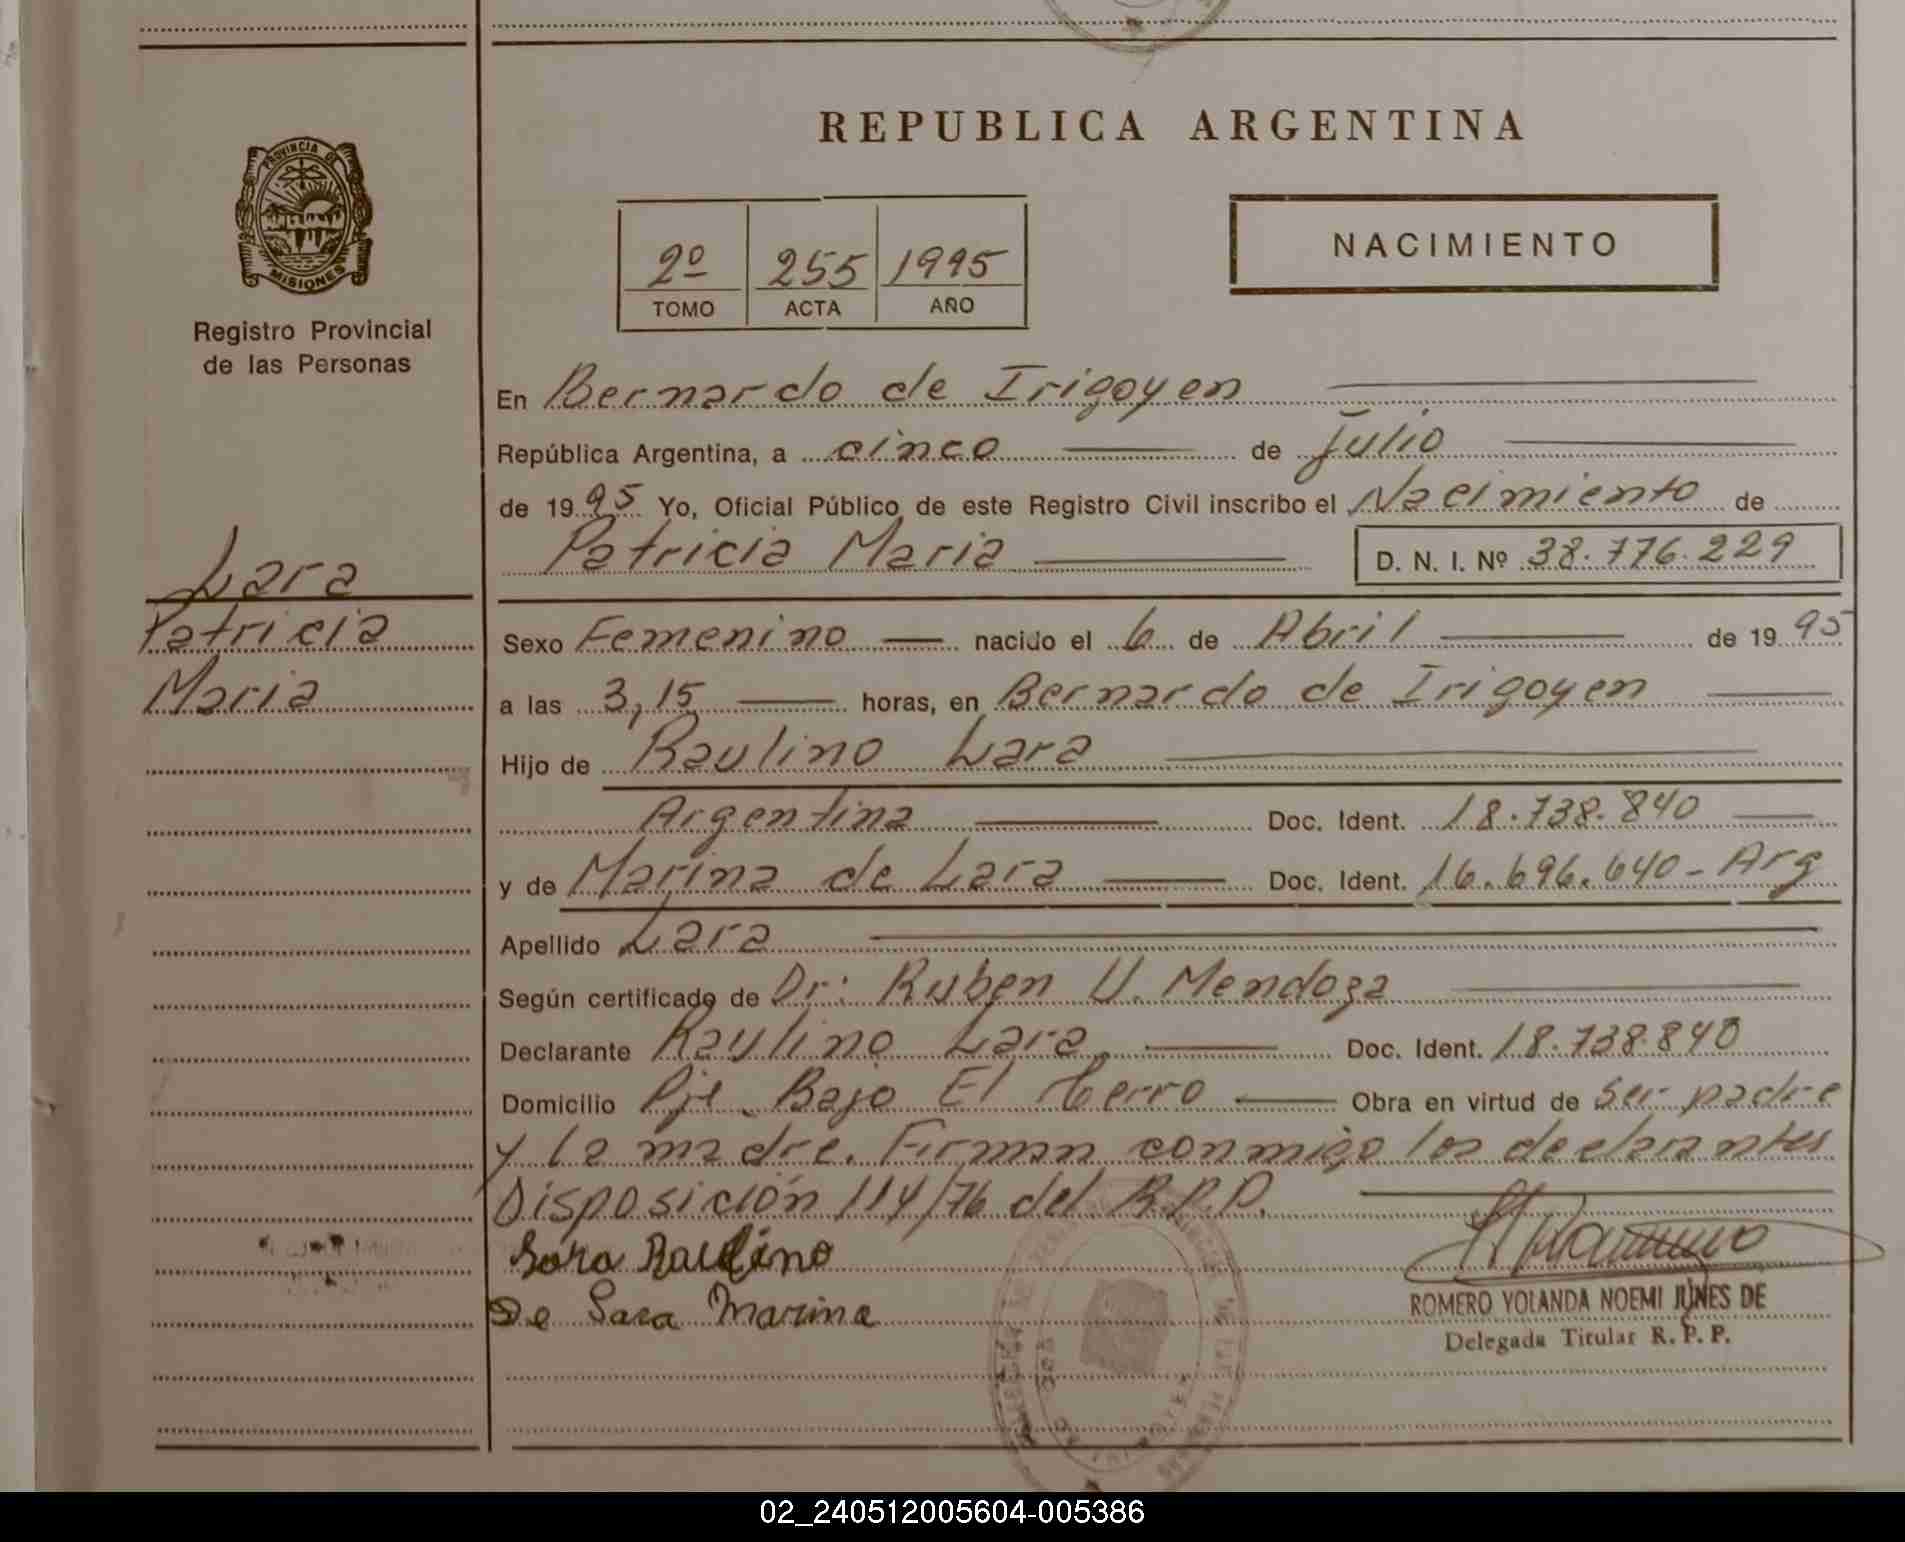 REPUBLICA ARGENTINA
PROVINCIA DE
MISIONES
Registro Provincial
de las Personas
2º 255 1995
TOMO ACTA AÑO
NACIMIENTO
En Bernardo de Irigoyen
República Argentina, a cinco de Julio
de 1995 Yo, Oficial Público de este Registro Civil inscribo el Nacimiento de
Patricia Maria D. N. I. Nº 38.776.229
Lara
Patricia
Maria
Sexo Femenino nacido el 6 de Abril de 1995
a las 3,15 horas, en Bernardo de Irigoyen
Hijo de Raulino Lara
Argentina Doc. Ident. 18.738.840
y de Marina de Lara Doc. Ident. 16.696.640 - Arg
Apellido Lara
Según certificado de Dr: Ruben U. Mendoza
Declarante Raulino Lara Doc. Ident. 18.738.840
Domicilio Pje. Bajo El Cerro Obra en virtud de ser padre
y la madre. Firman conmigo los declarantes
Disposición 114/76 del R.P.P.
Lara Raulino
De Lara Marina
ROMERO YOLANDA NOEMI JUNES DE
Delegada Titular R. P. P.
02_240512005604-005386